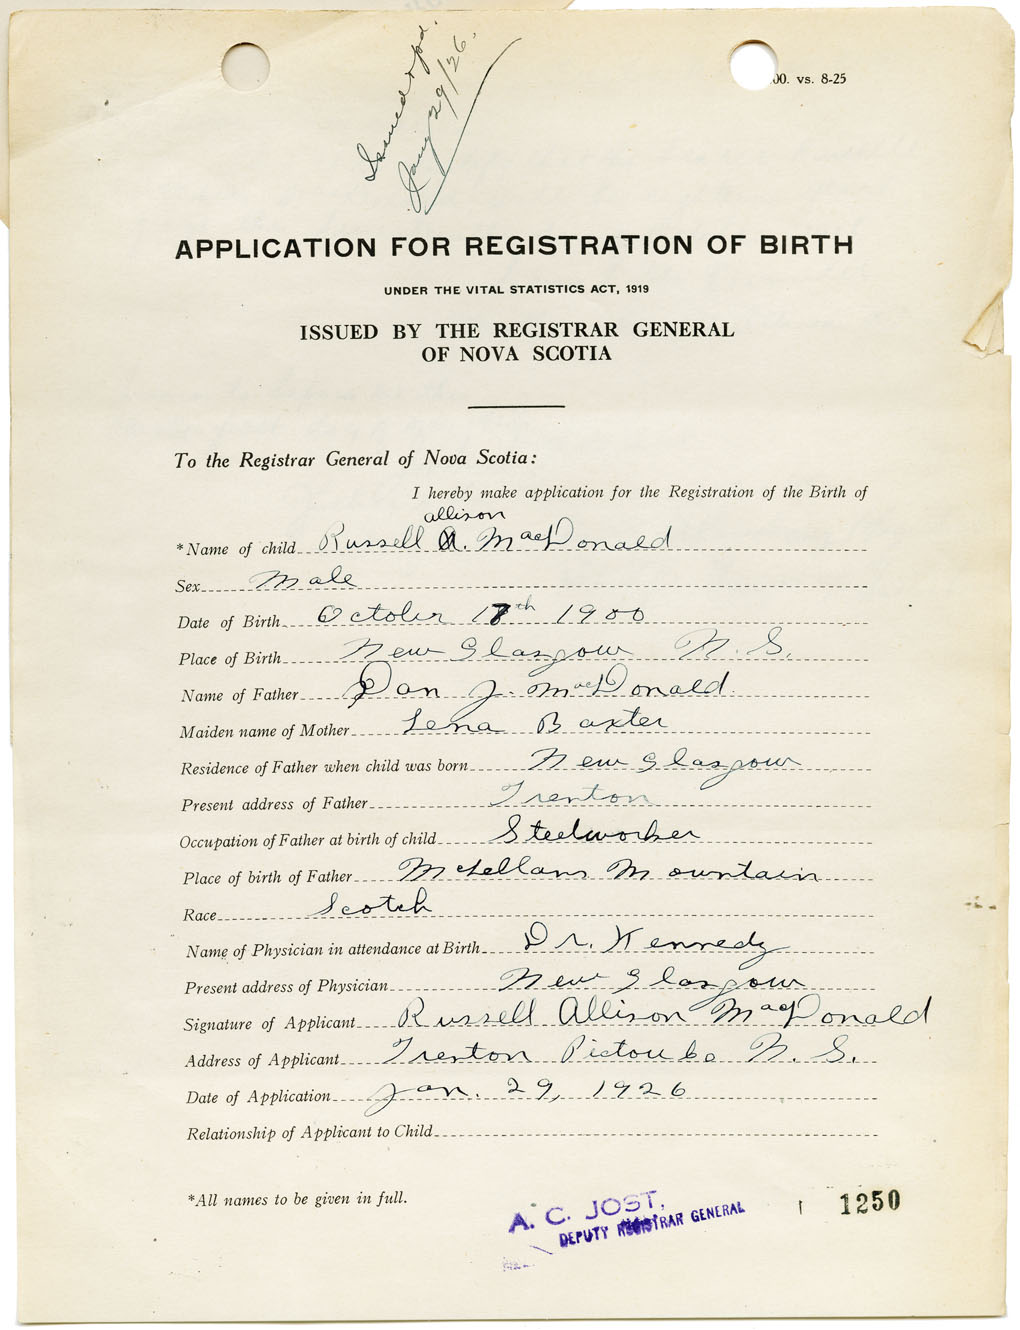 Issued & pd.
Jany 29/26.
00. vs. 8-25
APPLICATION FOR REGISTRATION OF BIRTH
UNDER THE VITAL STATISTICS ACT, 1919
ISSUED BY THE REGISTRAR GENERAL
OF NOVA SCOTIA
To the Registrar General of Nova Scotia:
I hereby make application for the Registration of the Birth of
allison
*Name of child Russell A. MacDonald
Sex Male
Date of Birth October 18th 1900
Place of Birth New Glasgow N. S.
Name of Father Dan J. MacDonald.
Maiden name of Mother Lena Baxter
Residence of Father when child was born New Glasgow
Present address of Father Trenton
Occupation of Father at birth of child Steelworker
Place of birth of Father McLellans Mountain
Race Scotch
Name of Physician in attendance at Birth Dr. Kennedy
Present address of Physician New Glasgow
Signature of Applicant Russell Allison MacDonald
Address of Applicant Trenton Pictou Co N. S.
Date of Application Jan. 29, 1926
Relationship of Applicant to Child
*All names to be given in full.
A. C. JOST,
DEPUTY REGISTRAR GENERAL
1250